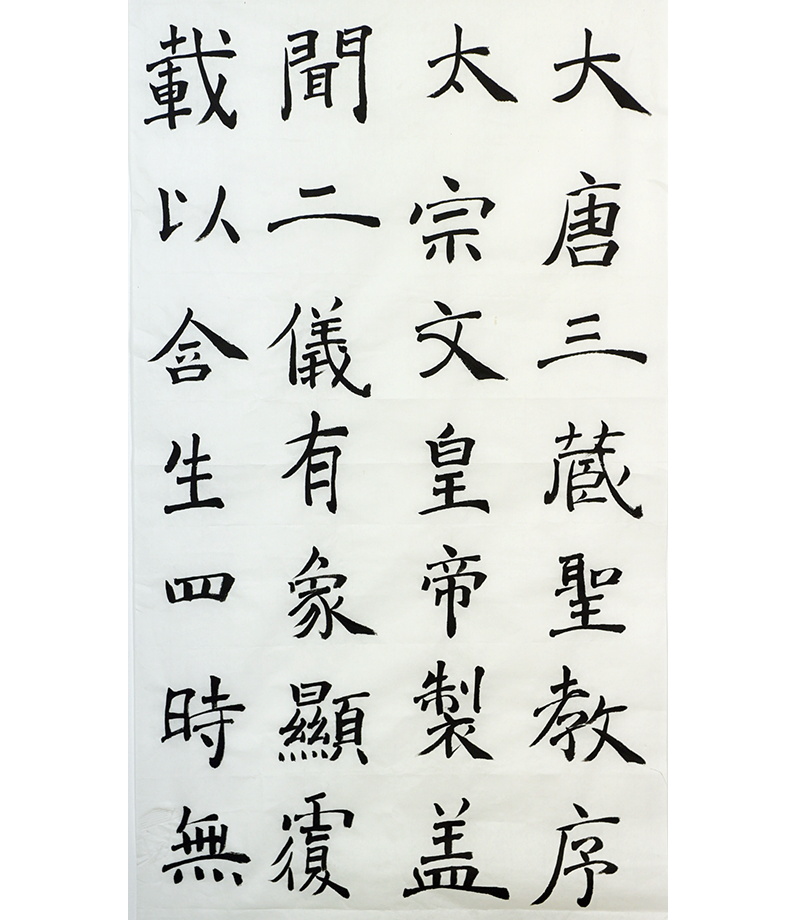 大唐三蔵聖教序
太宗文皇帝製盖
聞二儀有象顯覆
載以含生四時無